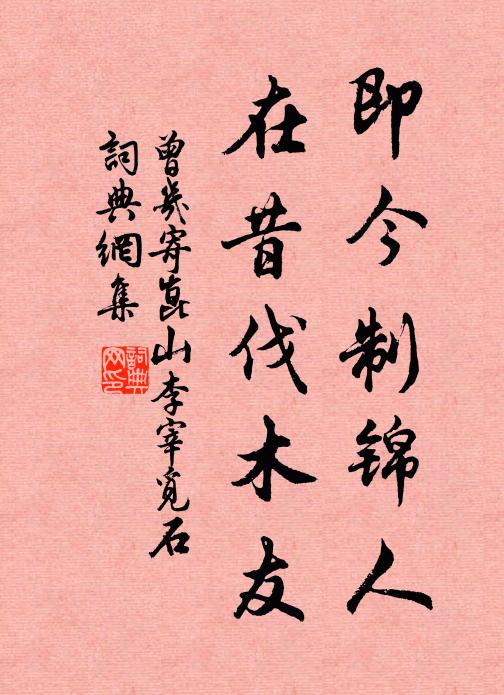 即今制锦人
在昔伐木友
曾幾寄崑山李宰觅石
詞典網集
詞典网印